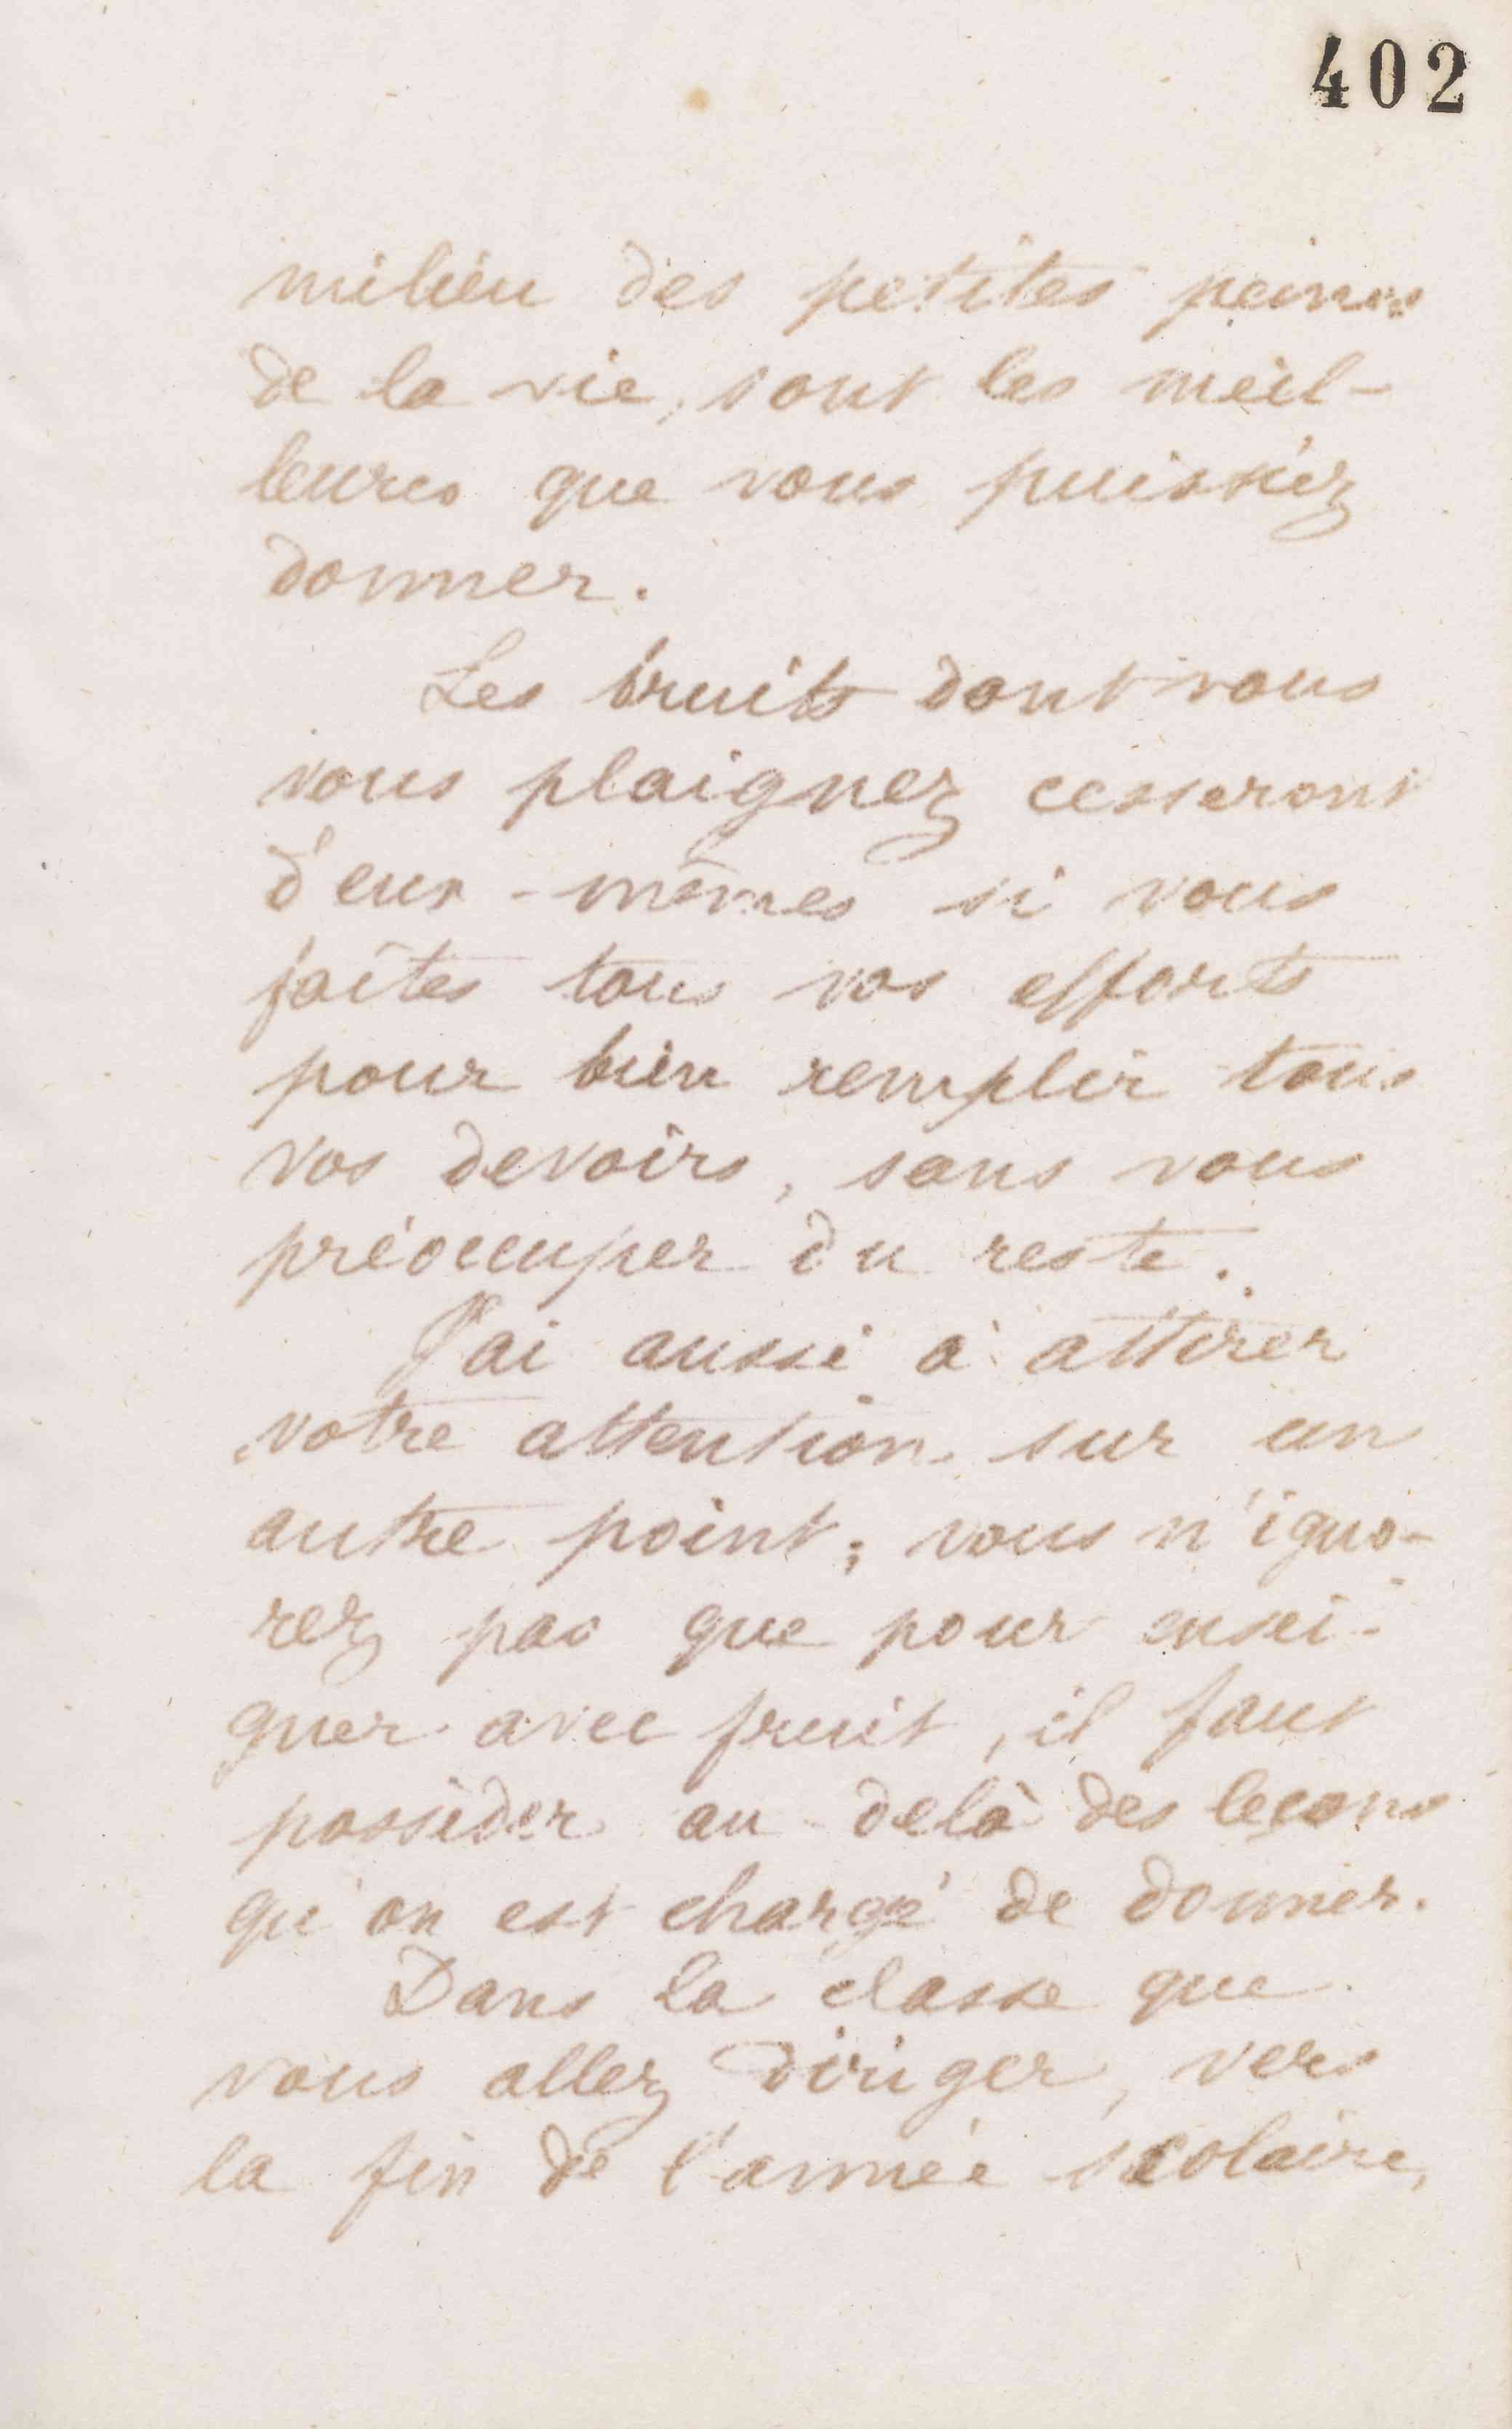 402
milieu des petites peines
de la vie, sont les meil-
leures que vous puissiez
donner.
Les bruits dont vous
vous plaignez cesseront
d'eux-mêmes si vous
faites tous vos efforts
pour bien remplir tous
vos devoirs, sans vous
préoccuper du reste.
J'ai aussi à attirer
votre attention sur un
autre point; vous n'igno-
rez pas que pour ensei-
gner avec fruit, il faut
posséder au delà des leçons
qu'on est chargé de donner.
Dans la classe que
vous allez diriger, vers
la fin de l'année scolaire,